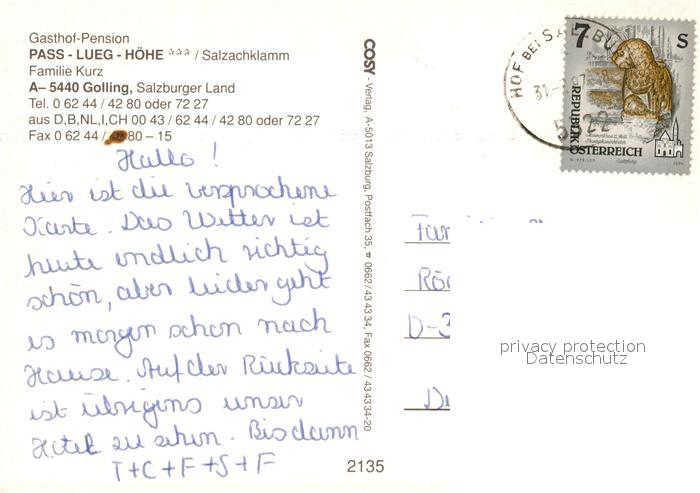 Gasthof-Pension
PASS - LUEG - HÖHE *** / Salzachklamm
Familie Kurz
A– 5440 Golling, Salzburger Land
Tel. 0 62 44 / 42 80 oder 72 27
aus D,B,NL,I,CH 00 43 / 62 44 / 42 80 oder 72 27
Fax 0 62 44 / 42 80 – 15
Hallo !
Hier ist die versprochene
Karte. Das Wetter ist
heute endlich richtig
schön, aber leider geht
es morgen schon nach
Hause. Auf der Rückseite
ist übrigens unser
Hotel zu sehen. Bis dann
T+C+F+S+F
COSY - Verlag, A-5013 Salzburg, Postfach 35, ☎ 0662 / 43 43 34, Fax 0662 / 43 43 34-20
2135
HOF BEI SALZBU
5322
7 S
REPUBLIK
ÖSTERREICH
Fam
Rö
D-3
privacy protection
Datenschutz